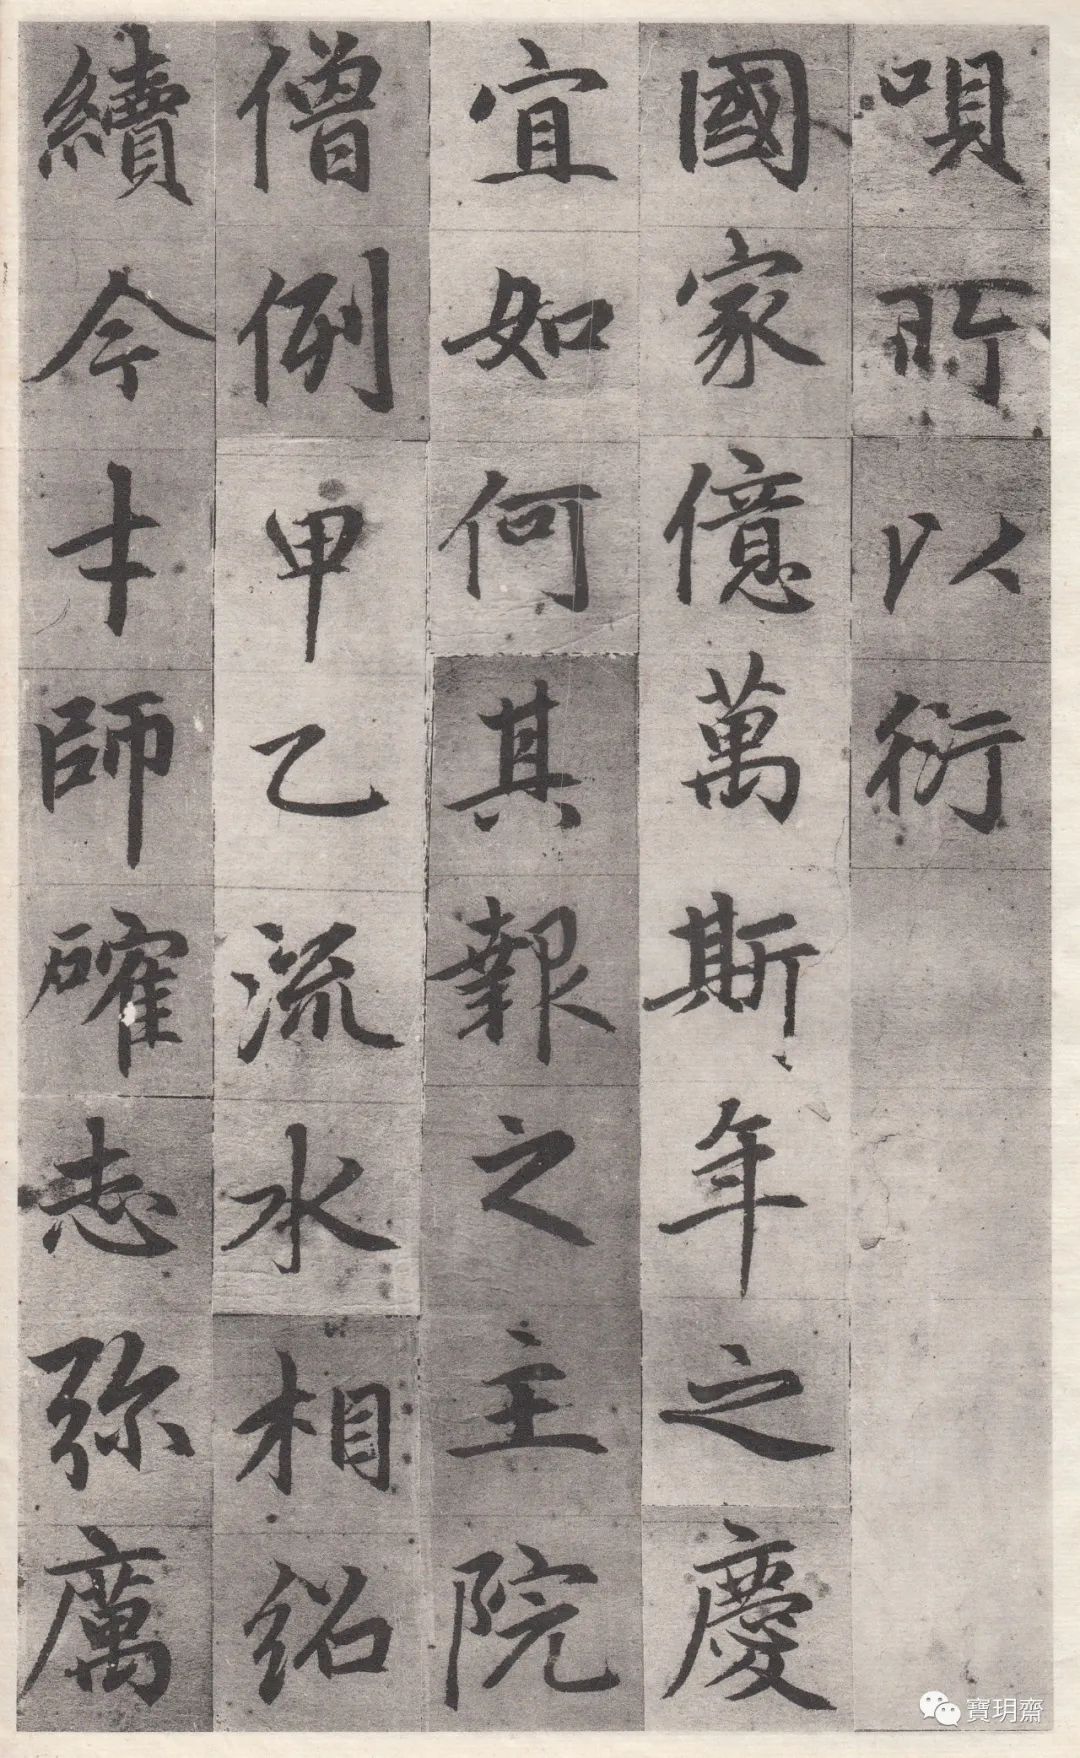 唄所以衍
國家億萬斯年之慶
宜如何其報之主院
僧例甲乙流水相紹
續今才師確志弥厲
寶玥齋